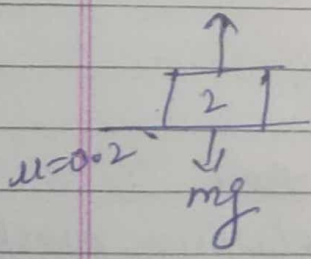 2
μ=0.2
mg